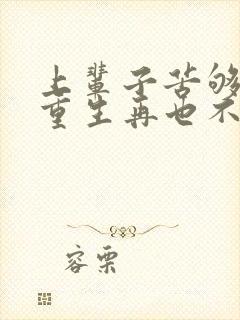 上辈子苦够
重生再也不
容栗